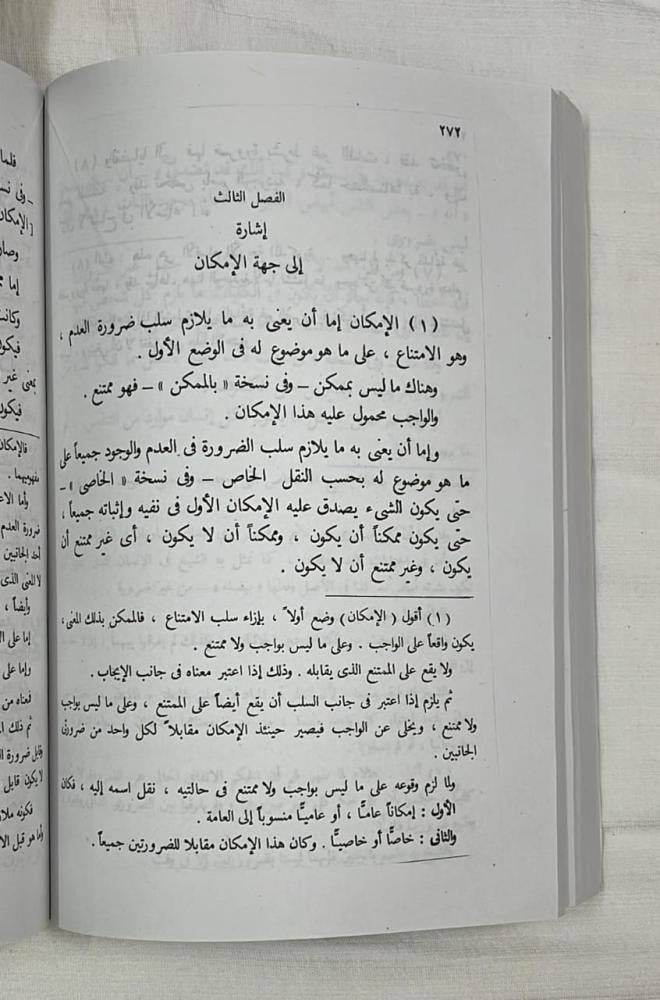 ٢٧٢
الفصل الثالث
إشارة
إلى جهة الإمكان
(١) الإمكان إما أن يعنى به ما يلازم سلب ضرورة العدم ،
وهو الامتناع ، على ما هو موضوع له فى الوضع الأول .
وهناك ما ليس بممكن – وفى نسخة « بالممكن » – فهو ممتنع .
والواجب محمول عليه هذا الإمكان .
وإما أن يعنى به ما يلازم سلب الضرورة فى العدم والوجود جميعاً على
ما هو موضوع له بحسب النقل الخاص – وفى نسخة « الخاصى » –
حتى يكون الشىء يصدق عليه الإمكان الأول فى نفيه وإثباته جميعاً ،
حتى يكون ممكناً أن يكون ، وممكناً أن لا يكون ، أى غير ممتنع أن
يكون ، وغير ممتنع أن لا يكون .
(١) أقول ( الإمكان ) وضع أولاً ، بإزاء سلب الامتناع ، فالممكن بذلك المعنى ،
يكون واقعاً على الواجب . وعلى ما ليس بواجب ولا ممتنع .
ولا يقع على الممتنع الذى يقابله . وذلك إذا اعتبر معناه فى جانب الإيجاب .
ثم يلزم إذا اعتبر فى جانب السلب أن يقع أيضاً على الممتنع ، وعلى ما ليس بواجب
ولا ممتنع ، ويخلى عن الواجب فيصير حينئذ الإمكان مقابلاً لكل واحد من ضرورتى
الجانبين .
ولما لزم وقوعه على ما ليس بواجب ولا ممتنع فى حالتيه ، نقل اسمه إليه ، فكان
الأول : إمكاناً عامًّا ، أو عاميًّا منسوباً إلى العامة .
والثانى : خاصًّا أو خاصيًّا . وكان هذا الإمكان مقابلا للضرورتين جميعاً .
فلما
– وفى نسخ
[ الإمكان
وصار
إما
وكانت
فيكون
بمعنى غير
فيكون
فالإمكان
مفهوميهما .
وأما
ضرورة العدم
لأحد الجانبين
لا المعنى الذى
وأيضاً ،
إما على
وإما على
فعناه من
ثم ذلك
وقابل ضرورة
لا يكون قابل
فكونه ملاز
وأما هو قبل